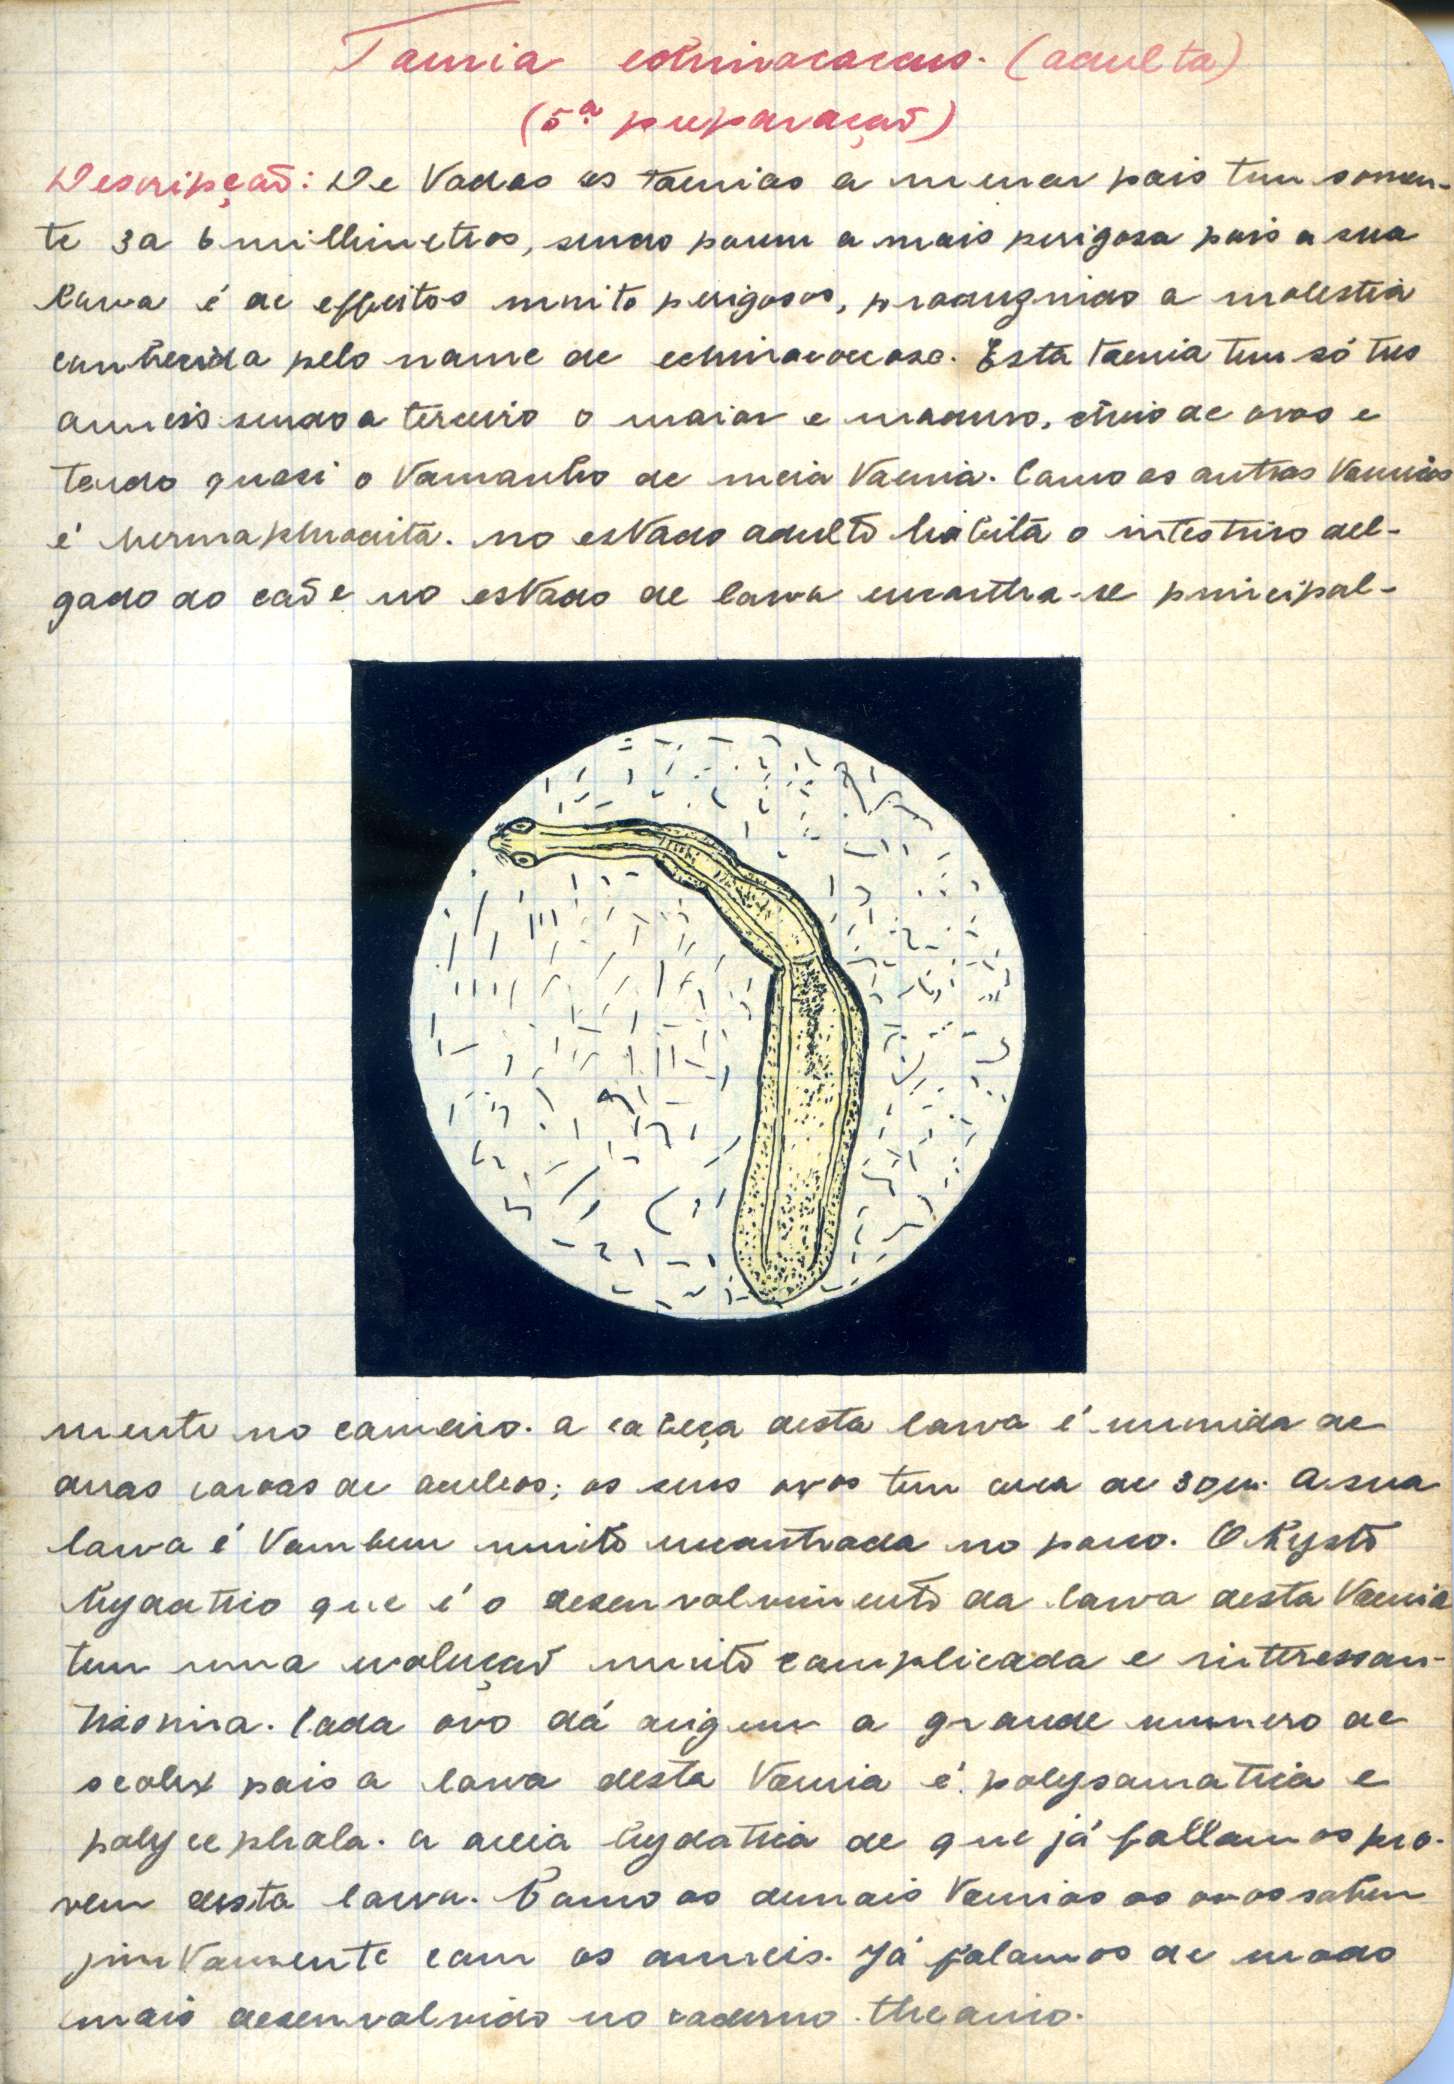 Taenia echinococcus. (adulta)
(5ª preparação)
Descripção: De todas as taenias a menor pois tem somen-
te 3 a 6 millimetros, sendo porem a mais perigosa pois a sua
larva é de effeitos muito perigosos, produzindo a molestia
conhecida pelo nome de echinococcose. Esta taenia tem só tres
anneis sendo o terceiro o maior e maduro, cheio de ovos e
tendo quasi o tamanho de meia taenia. Como as outras taenias
é hermaphrodita. No estado adulto habita o intestino del-
gado do cão e no estado de larva encontra-se principal-
mente no carneiro. A cabeça desta larva é munida de
duas coroas de aculeos; os seus ovos tem cerca de 30 µ. A sua
larva é tambem muito encontrada no porco. O Kysto
hydatico que é o desenvolvimento da larva desta taenia
tem uma evolução muito complicada e interessan-
tissima. Cada ovo dá origem a grande numero de
scolex pois a larva desta taenia é polysomatica e
polycephala. A areia hydatica de que já fallamos pro-
vem desta larva. Como as demais taenias os ovos sahem
juntamente com os anneis. Já falamos de modo
mais desenvolvido no caderno theorico.